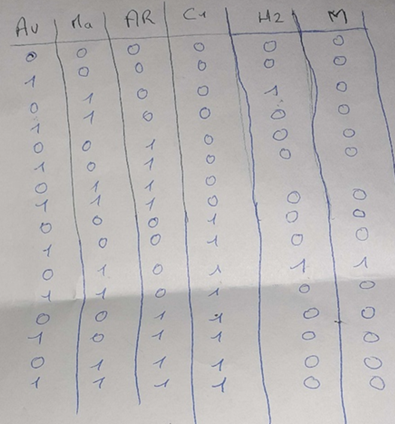 AU Ma AR C1 H2 M
0 0 0 0 0 0
1 0 0 0 0 0
0 1 0 0 1 0
1 1 0 0 0 0
0 0 1 0 0 0
1 0 1 0 0 0
0 1 1 0
1 1 1 0 0 0
0 0 0 1 0 0
1 0 0 1 0 0
0 1 0 1 1 1
1 1 0 1 0 0
0 0 1 1 0 0
1 0 1 1 0 0
0 1 1 1 0 0
1 1 1 1 0 0